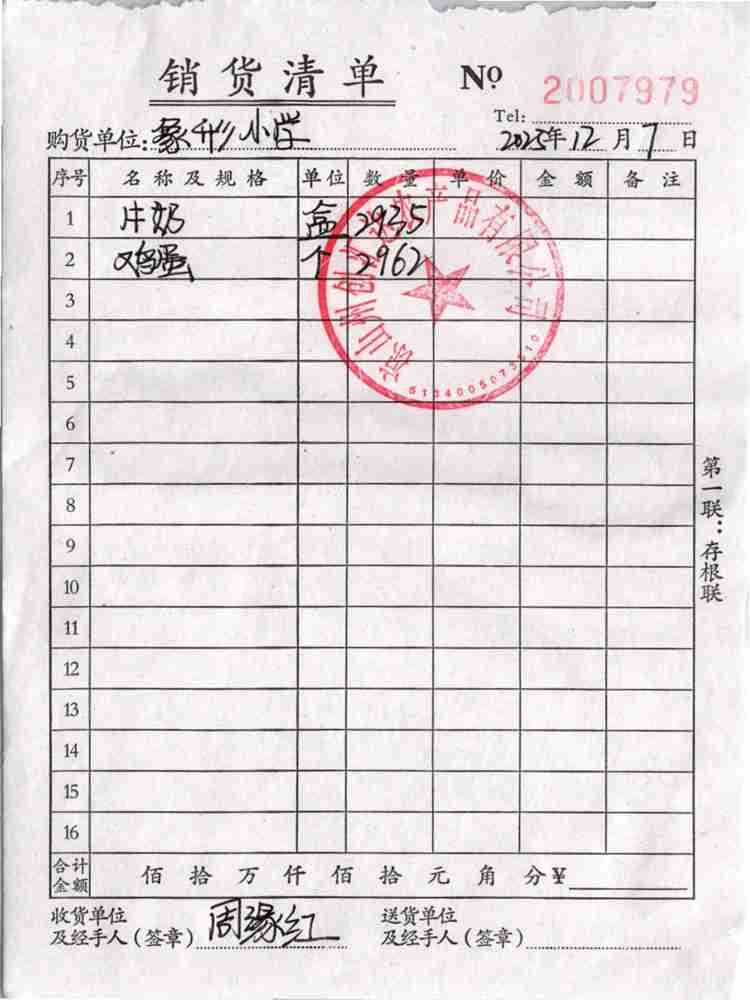 销货清单 № 2007979
Tel:
购货单位: 象形小学 2025年12月7日
序号 名称及规格 单位 数量 单价 金额 备注
1 牛奶 盒 2935
2 鸡蛋 个 2962
3
4
5
6
7
8
9
10
11
12
13
14
15
16
合计金额 佰 拾 万 仟 佰 拾 元 角 分 ¥
收货单位
及经手人(签章) 周缘红
送货单位
及经手人(签章)
第一联:存根联
农产品有限公司